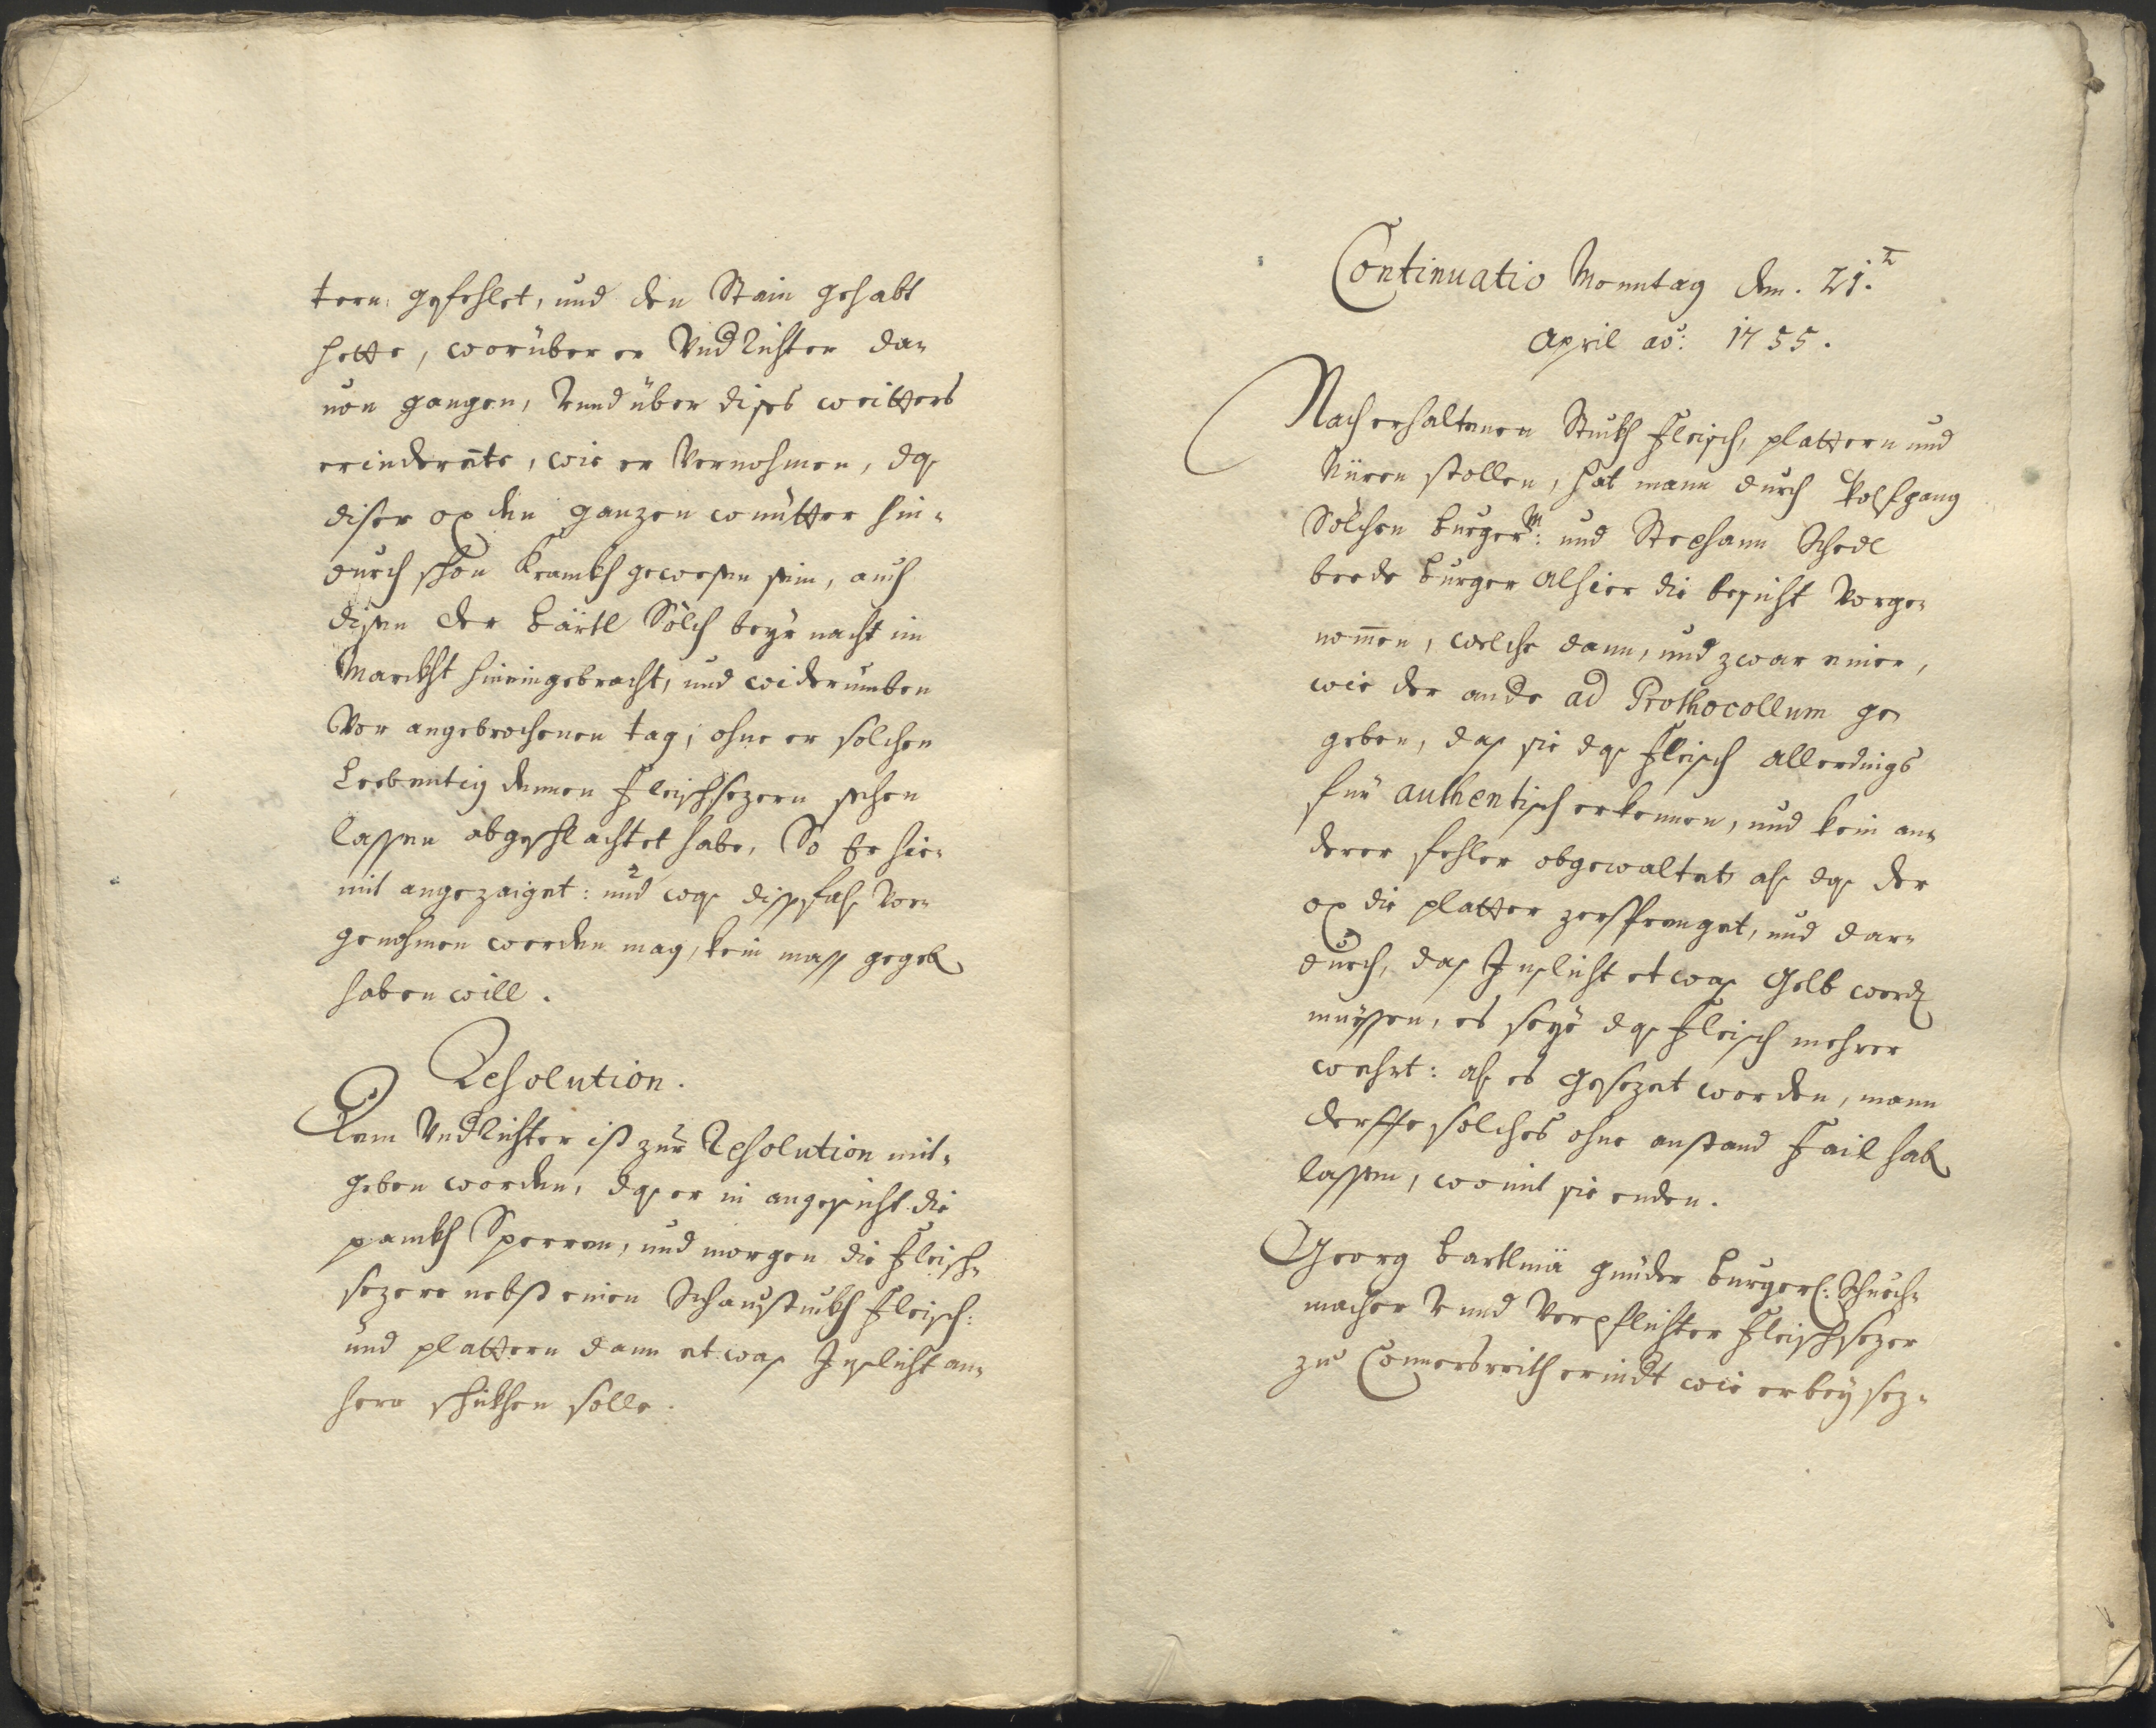 tern gefehlet, und den Stain gehabt
hette, worüber er Undrichter da-
von gangen, Vnnd über dises weitters
erinderete, wie er Vernohmen, dß
diser ox den ganzen wintter hin-
durch schon Krankh gewesen sein, auch
disen der Bärtl Sölch beÿr nacht im
Marckht hineingebracht, und widerumben
Vor angebrochenen tag, ohne er solchen
Lebentig denen Fleischsezern sehen
lassen abgeschlachtet habe, So Er hie-
mit angezaiget: und wß dissfahls Vor-
genohmen werden mag, kein mass gegeb
haben will.
Resolution.
Dem Undrichter ist zur Resolution mit-
geben worden, dß er in angesicht die
pankh Sperren, und morgen die Fleisch-
sezere nebst einen Schaustukh Fleisch:
und plattern dann etwas Inslicht an-
hero schikhen solle.
Continuatio Monntag den. 21.t
April ao: 1755.
Nach erhaltenen Stukh Fleisch, plattern und
Nüren stollen, hat mann durch Wolfgang
Sölchen burgerm: und Stephann Schedl
beede burger alhier die besicht Vorge-
nommen, welche dann, und zwar einer,
wie der ande ad Prothocollum ge-
geben, das sie dß Fleisch allerdings
für authentisch erkennen, und kein an-
derer fehler obgewaltet als dß der
ox die platter zersprenget, und dar-
durch, das Inslicht etwas Gelb werd
müessen, es seÿe dß Fleisch mehrer
wehrt: als es gesezet worden, mann
derffe solches ohne anstand Fail hab
lassen, womit sie enden.
Georg bartlmä gmüder burgerl: Schuech-
macher Vnnd Verpflichter Fleischsezer
zu Connersreith erindt wie er beÿ sez-